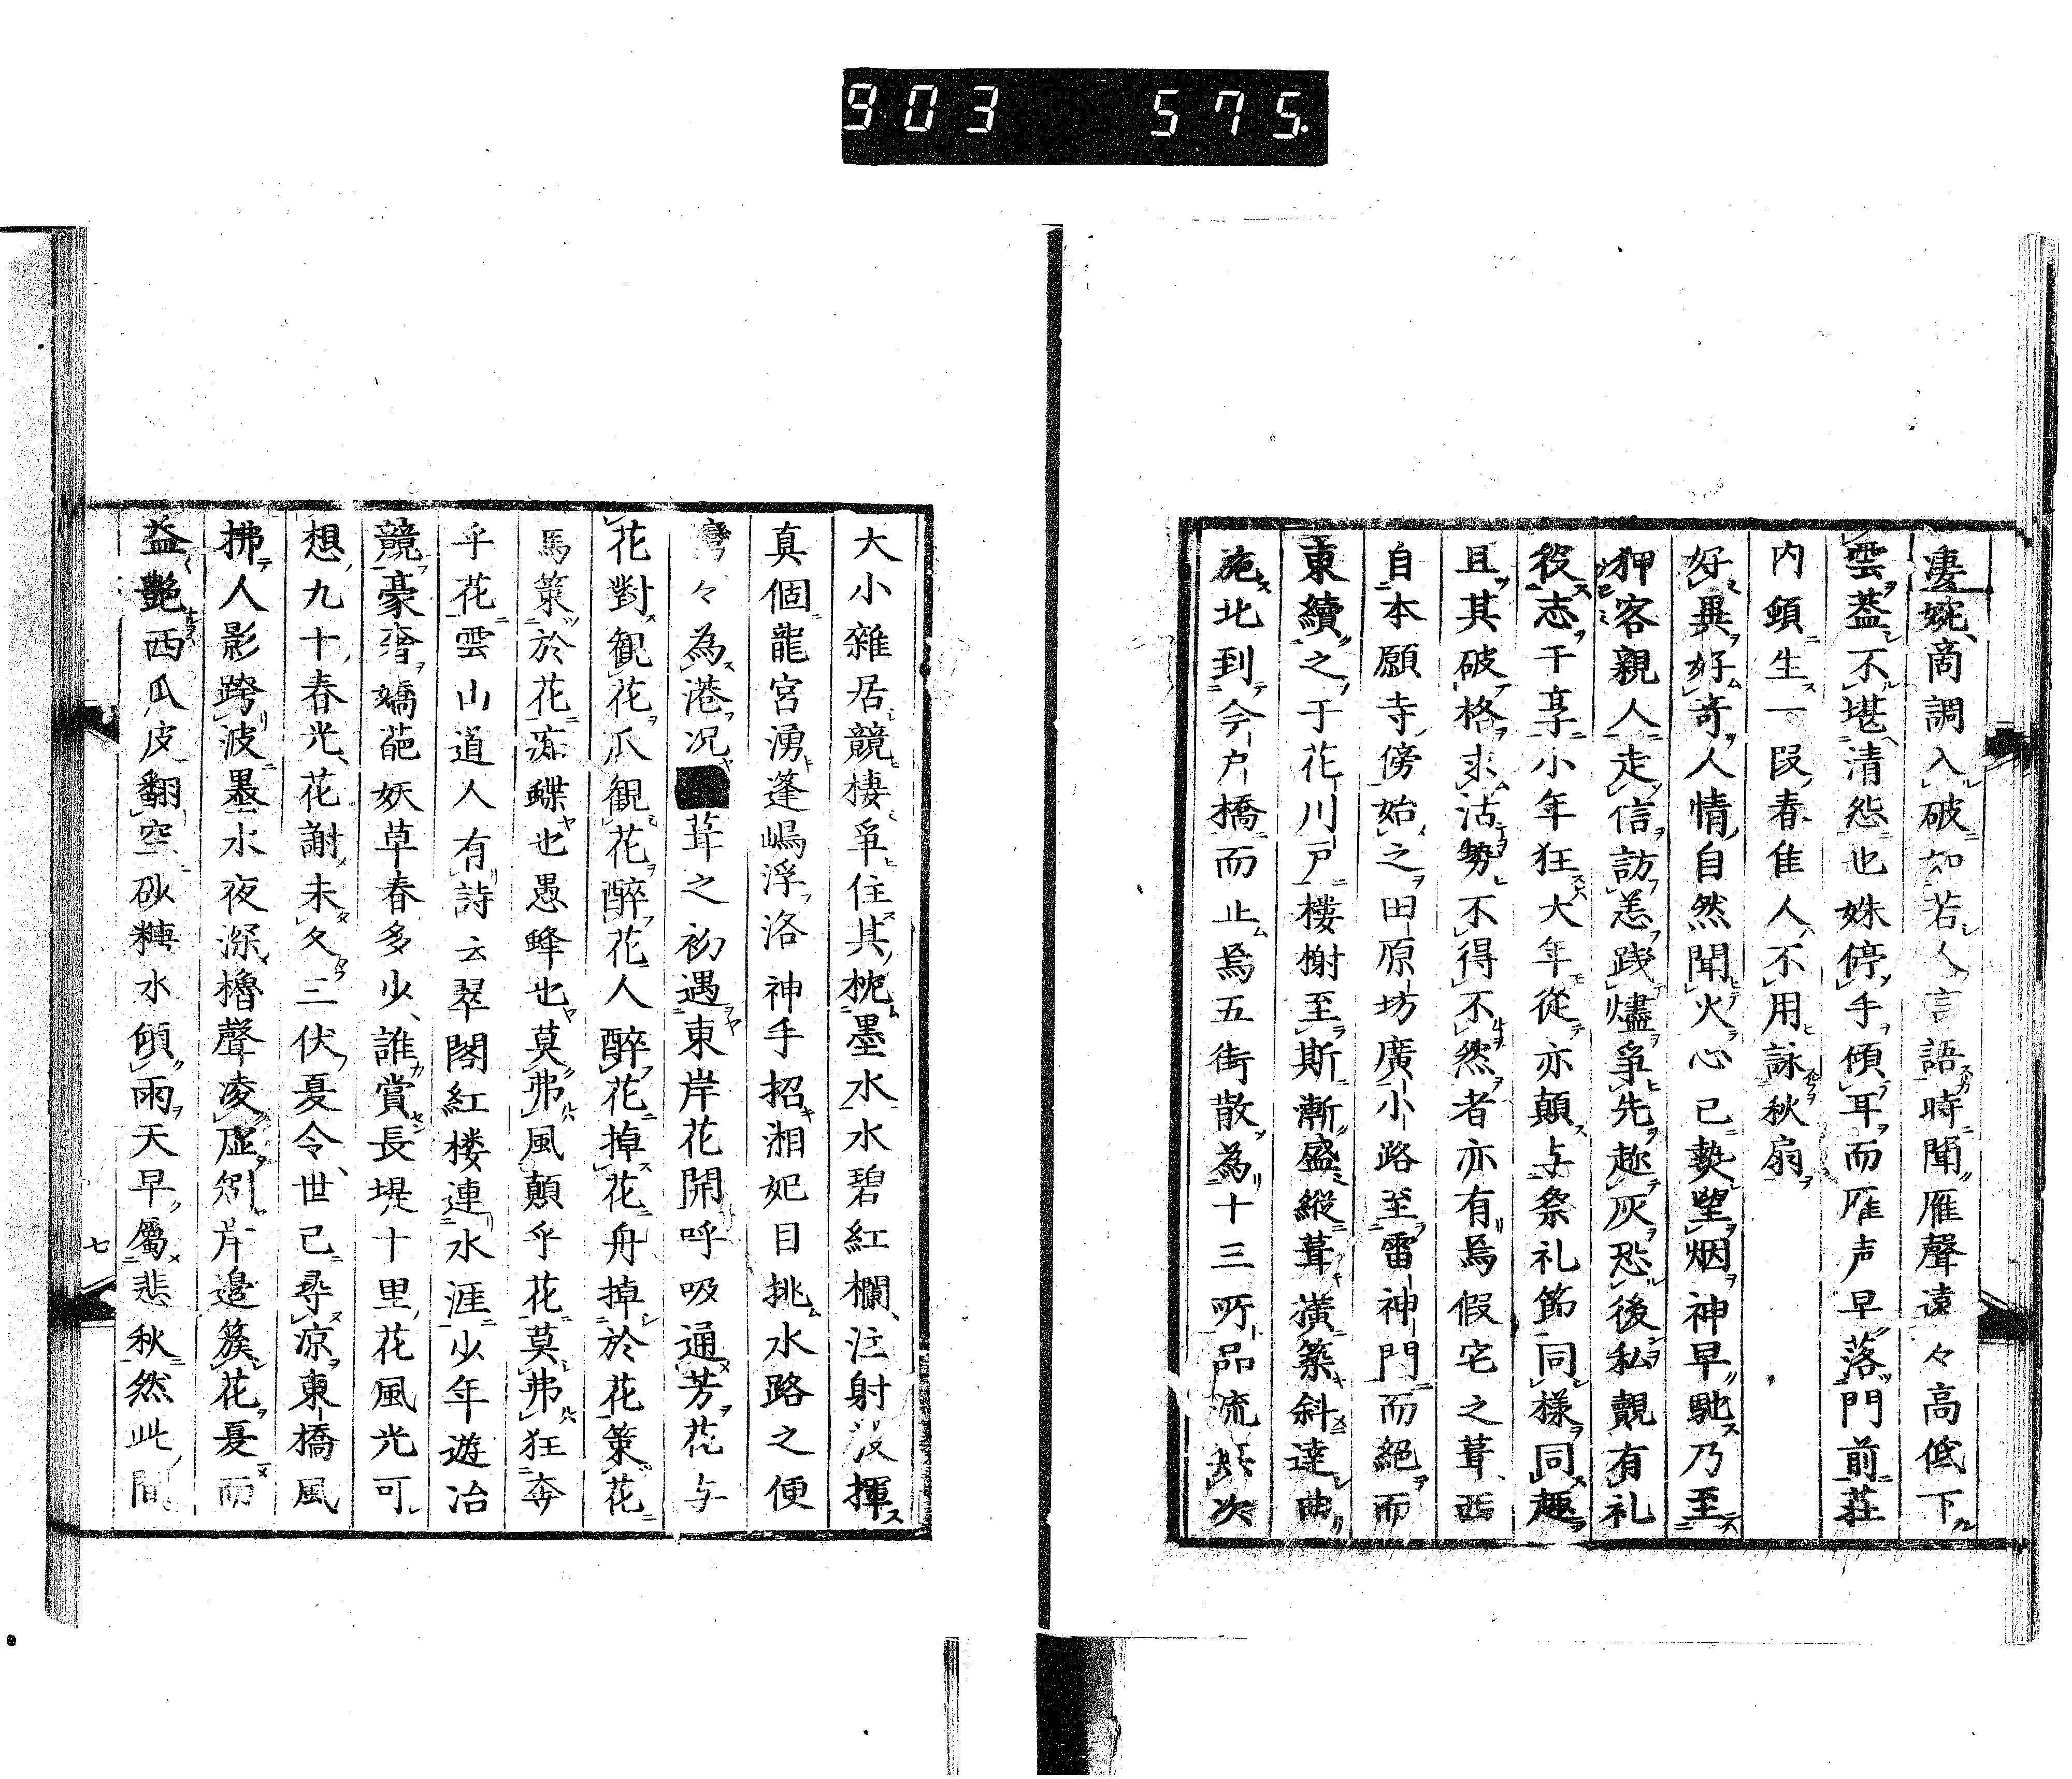 903 575.
凄婉、商調入破如若人言語時聞雁聲遠々高低下
雲葢不堪清怨也姝停手傾耳而雁声早落門前莊
内頓生一段春隹人不用詠秋扇
好異好奇人情自然聞火心已熱望烟神早馳乃至
狎客親人走信訪恙践燼爭先趂灰恐後私覿有礼
役志干享小年狂大年從亦顛与祭礼節同樣同趣
且其破格求沽勢不得不然者亦有焉假宅之葺西
自本願寺傍始之田原坊廣小路至雷神門而絕而
東續之于花川戸樓榭至斯漸盛縦葺潢築斜達曲
施北到今戸橋而止焉五街散為十三所品流次
大小雜居競棲爭住其枕墨水水碧紅欄、注射没揮
真個龍宮湧蓬嶋浮洛神手招湘妃目挑水路之便
灣々為港况葺之初遇東岸花開呼吸通芳花与
花對観花瓜観花醉花人醉花掉花舟掉於花策花
馬策於花痴蝶也愚蜂也莫弗風顛乎花莫弗狂奔
乎花雲山道人有詩云翠閣紅楼連水涯少年遊冶
競豪奢嬌葩妖草春多少、誰賞長堤十里花風光可
想九十春光、花謝未久三伏夏令、世已尋凉東橋風
拂人影跨波墨水夜深櫓聲凌虚別岸邊簇花夏而
益艷西瓜皮翻空砂糖水傾雨天早屬悲秋然此間
七